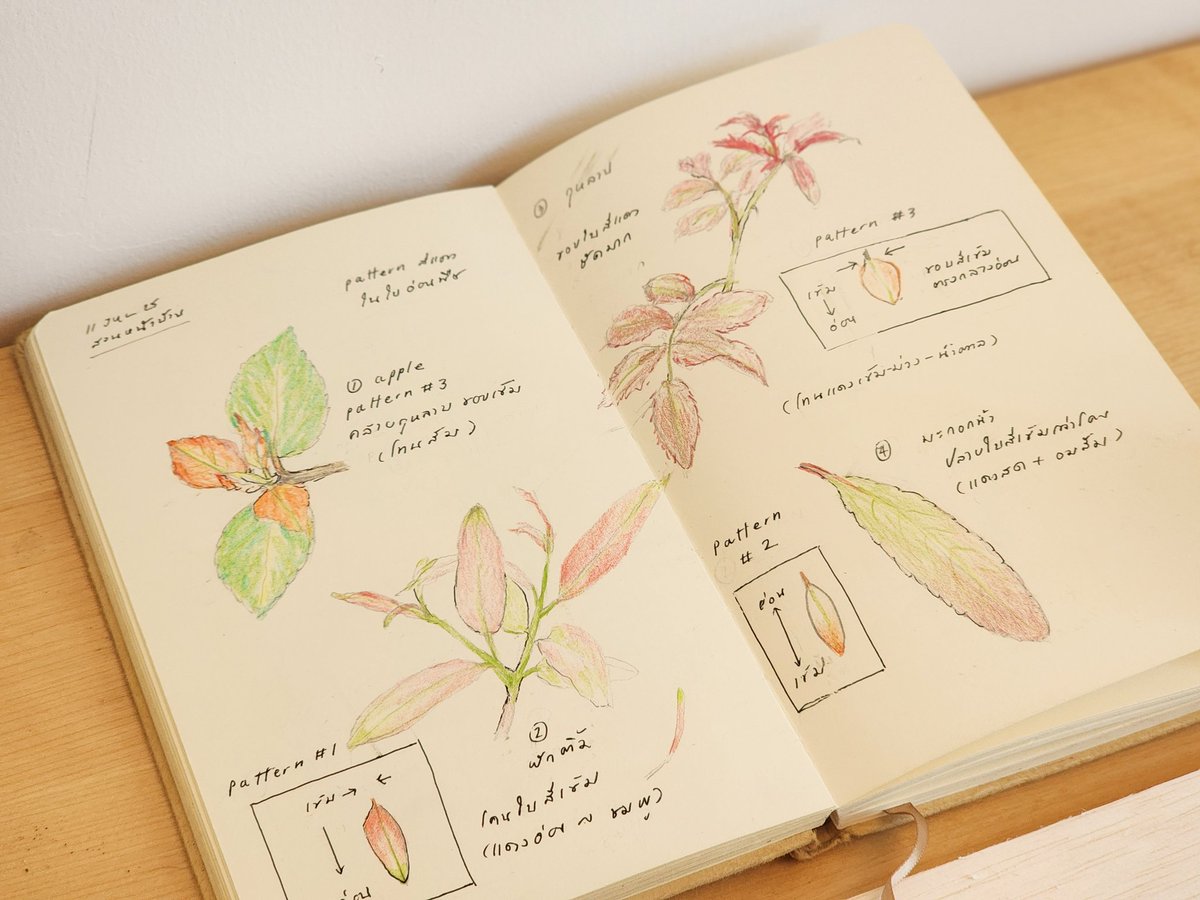 สวนหน้าบ้าน
pattern สีแดง
ในใบอ่อนพืช
① apple
pattern #3
คล้ายกุหลาบ ขอบเข้ม
(โทนส้ม)
② ผักติ้ว
โคนใบสีเข้ม
(แดงอ่อน ~ ชมพู)
pattern #1
เข้ม
อ่อน
③ กุหลาบ
ขอบใบสีแดง
ชัดมาก
pattern #3
เข้ม
อ่อน
ขอบสีเข้ม
ตรงกลางอ่อน
(โทนแดงเข้ม-ม่วง-น้ำตาล)
④ มะกอกน้ำ
ปลายใบสีเข้มกว่าโคน
(แดงสด + อมส้ม)
pattern
#2
อ่อน
เข้ม